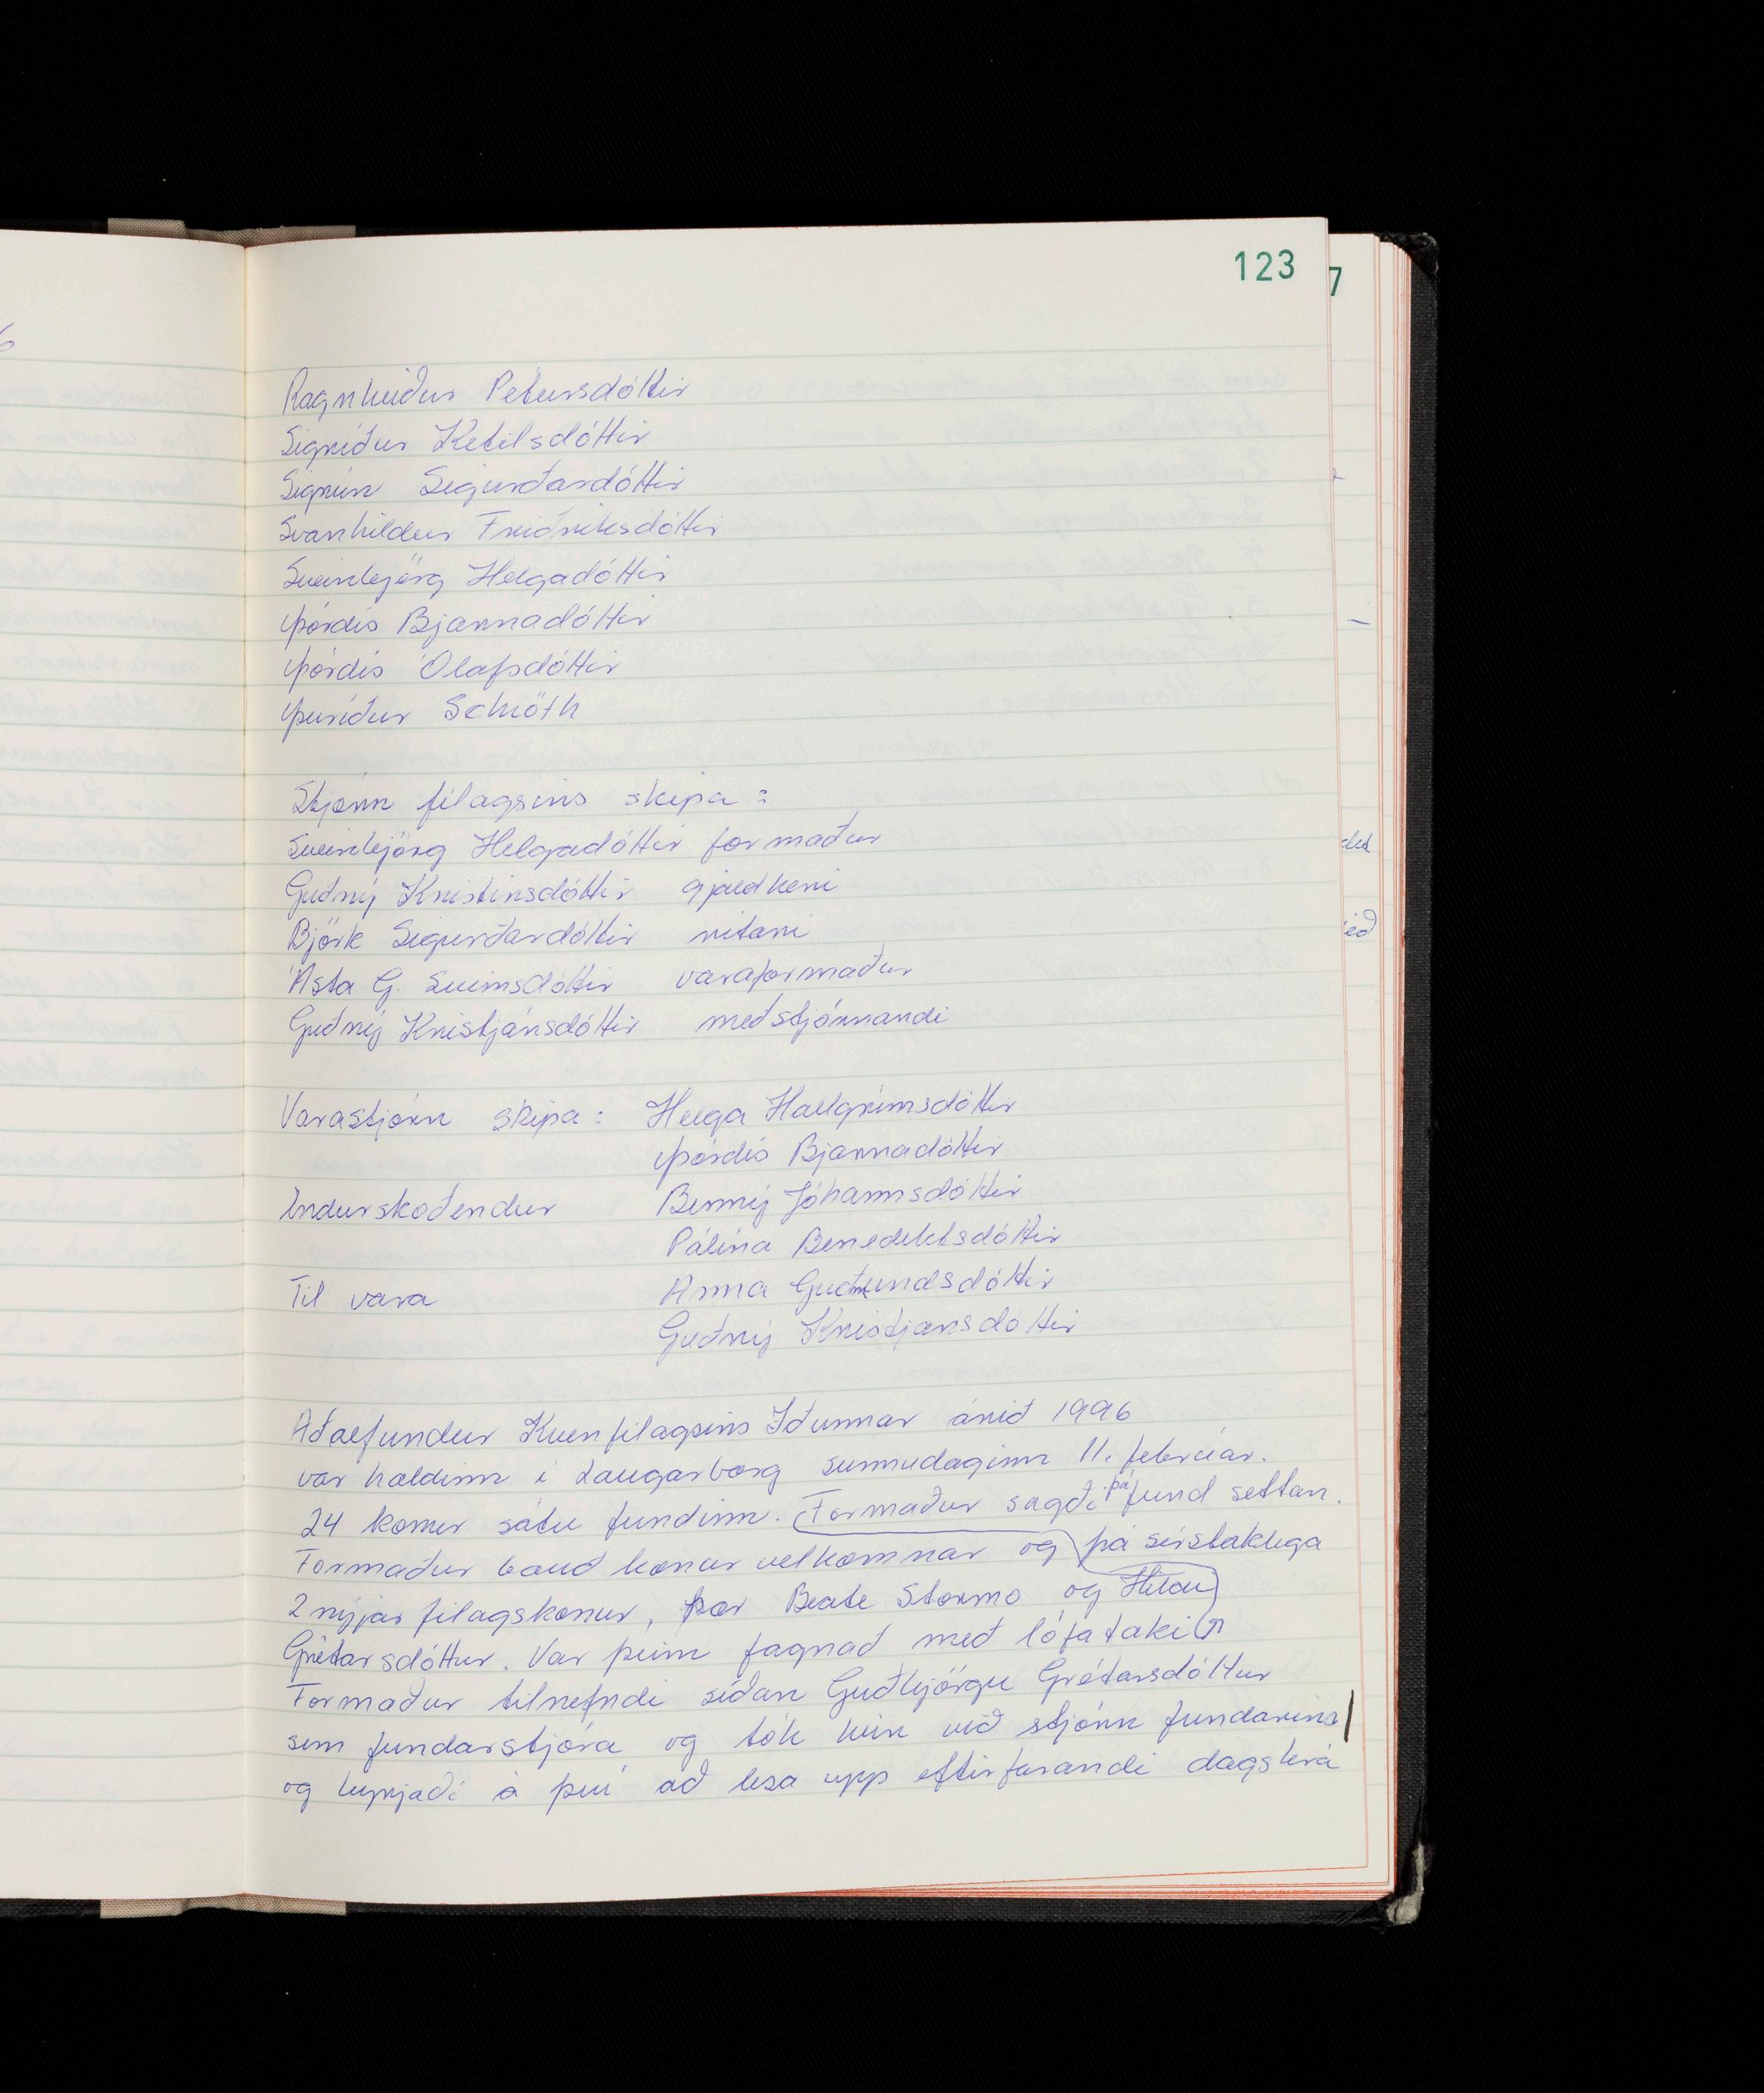 123
Ragnheiður Pétursdóttir
Sigríður Ketilsdóttir
Sigrún Sigurðardóttir
Svanhildur Friðriksdóttir
Sveinbjörg Helgadóttir
Þórdís Bjarnadóttir
Þórdís Ólafsdóttir
Þuríður Schiöth
Stjórn félagsins skipa:
Sveinbjörg Helgadóttir formaður
Guðný Kristinsdóttir gjaldkeri
Björk Sigurðardóttir ritari
Ásta G. Sveinsdóttir varaformaður
Guðný Kristjánsdóttir meðstjórnandi
Varastjórn skipa: Helga Hallgrímsdóttir
Þórdís Bjarnadóttir
Endurskoðendur Benný Jóhannsdóttir
Pálína Benediktsdóttir
Til vara Anna Guðmundsdóttir
Guðný Kristjánsdóttir
Aðalfundur Kvenfélagsins Iðunnar árið 1996
var haldinn í Laugarborg sunnudaginn 11. febrúar.
24 konur sátu fundinn. Formaður sagði þá fund settan.
Formaður bauð konur velkomnar og þá sérstaklega
2 nýjar félagskonur, þær Beate Stormo og
Grétarsdóttur. Var þeim fagnað með lófataki
Formaður tilnefndi síðan Guðbjörgu Grétarsdóttur
sem fundarstjóra og tók hún við stjórn fundarins
og byrjaði á því að lesa upp eftirfarandi dagskrá